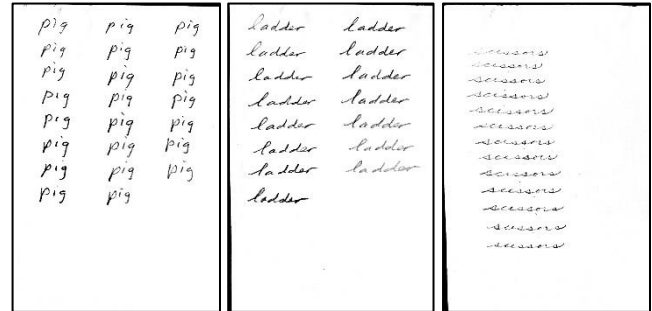 pig pig pig
pig pig pig
pig pig pig
pig pig pig
pig pig pig
pig pig pig
pig pig pig
pig pig
ladder ladder
ladder ladder
ladder ladder
ladder ladder
ladder ladder
ladder ladder
ladder ladder
ladder
scissors
scissors
scissors
scissors
scissors
scissors
scissors
scissors
scissors
scissors
scissors
scissors
scissors